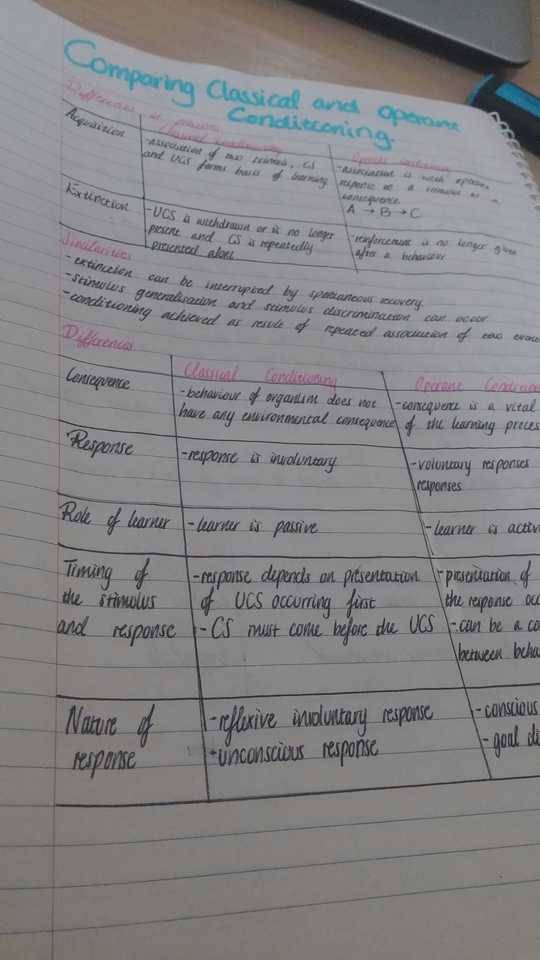 Comparing Classical and Operant
Conditioning.
Differences in process
Classical conditioning
Operant conditioning
Acquisition
-association of two stimuli, CS
and UCS forms basis of learning
-association is with
response to a stimulus
consequence
A → B → C
Extinction
-UCS is withdrawn or is no longer
present and CS is repeatedly
presented alone
-reinforcement is no longer given
after a behaviour
Similarities
-extinction can be interrupted by spontaneous recovery.
-stimulus generalisation and stimulus discrimination can occur
-conditioning achieved as result of repeated association of two
Differences
Classical Conditioning
Operant Condition
Consequence
-behaviour of organism does not
have any environmental consequence
-consequence is a vital
of the learning proces
Response
-response is involuntary
-voluntary responses
responses
Role of learner
-learner is passive
-learner is activ
Timing of
the stimulus
and response
-response depends on presentation
of UCS occurring first
-CS must come before the UCS
-presentation of
the response oc
-can be a co
between beha
Nature of
response
-reflexive involuntary response
-unconscious response
-conscious
-goal di